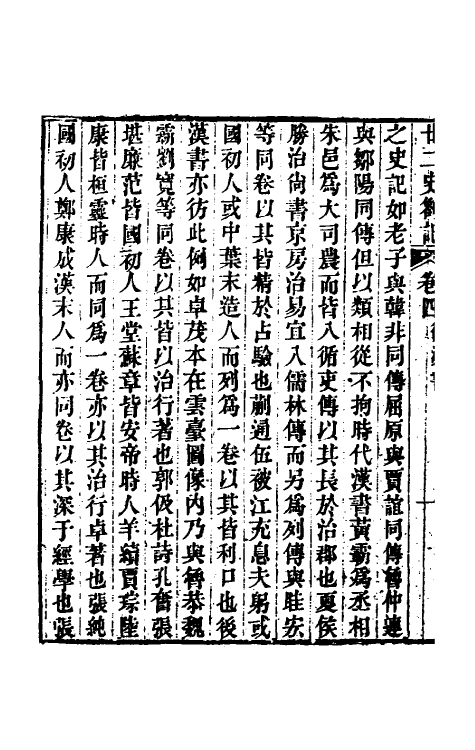 廿二史劄記 卷四
之史記如老子與韓非同傳屈原與賈誼同傳魯仲連
與鄒陽同傳但以類相從不拘時代漢書黃霸為丞相
朱邑為大司農而皆入循吏傳以其長於治郡也夏侯
勝治尚書京房治易宜入儒林傳而另為列傳與眭宏
等同卷以其皆精於占驗也蒯通伍被江充息夫躬或
國初人或中葉末造人而列為一卷以其皆利口也後
漢書亦彷此例如卓茂本在雲臺圖像內乃與魯恭魏
霸劉寬等同卷以其皆以治行著也郭伋杜詩孔奮張
堪廉范皆國初人王堂蘇章皆安帝時人羊續賈琮陸
康皆桓靈時人而同為一卷亦以其治行卓著也張純
國初人鄭康成漢末人而亦同卷以其深于經學也張